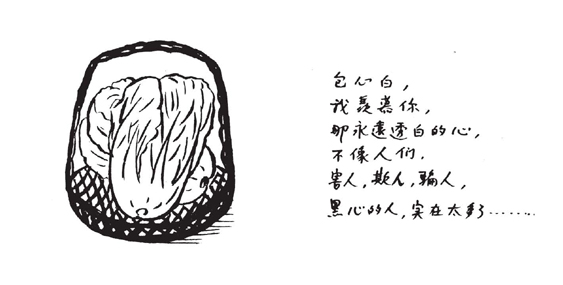 包心白，
我羡慕你，
那永远透白的心，
不像人们．
害人，欺人，骗人，
黑心的人，实在太多了………